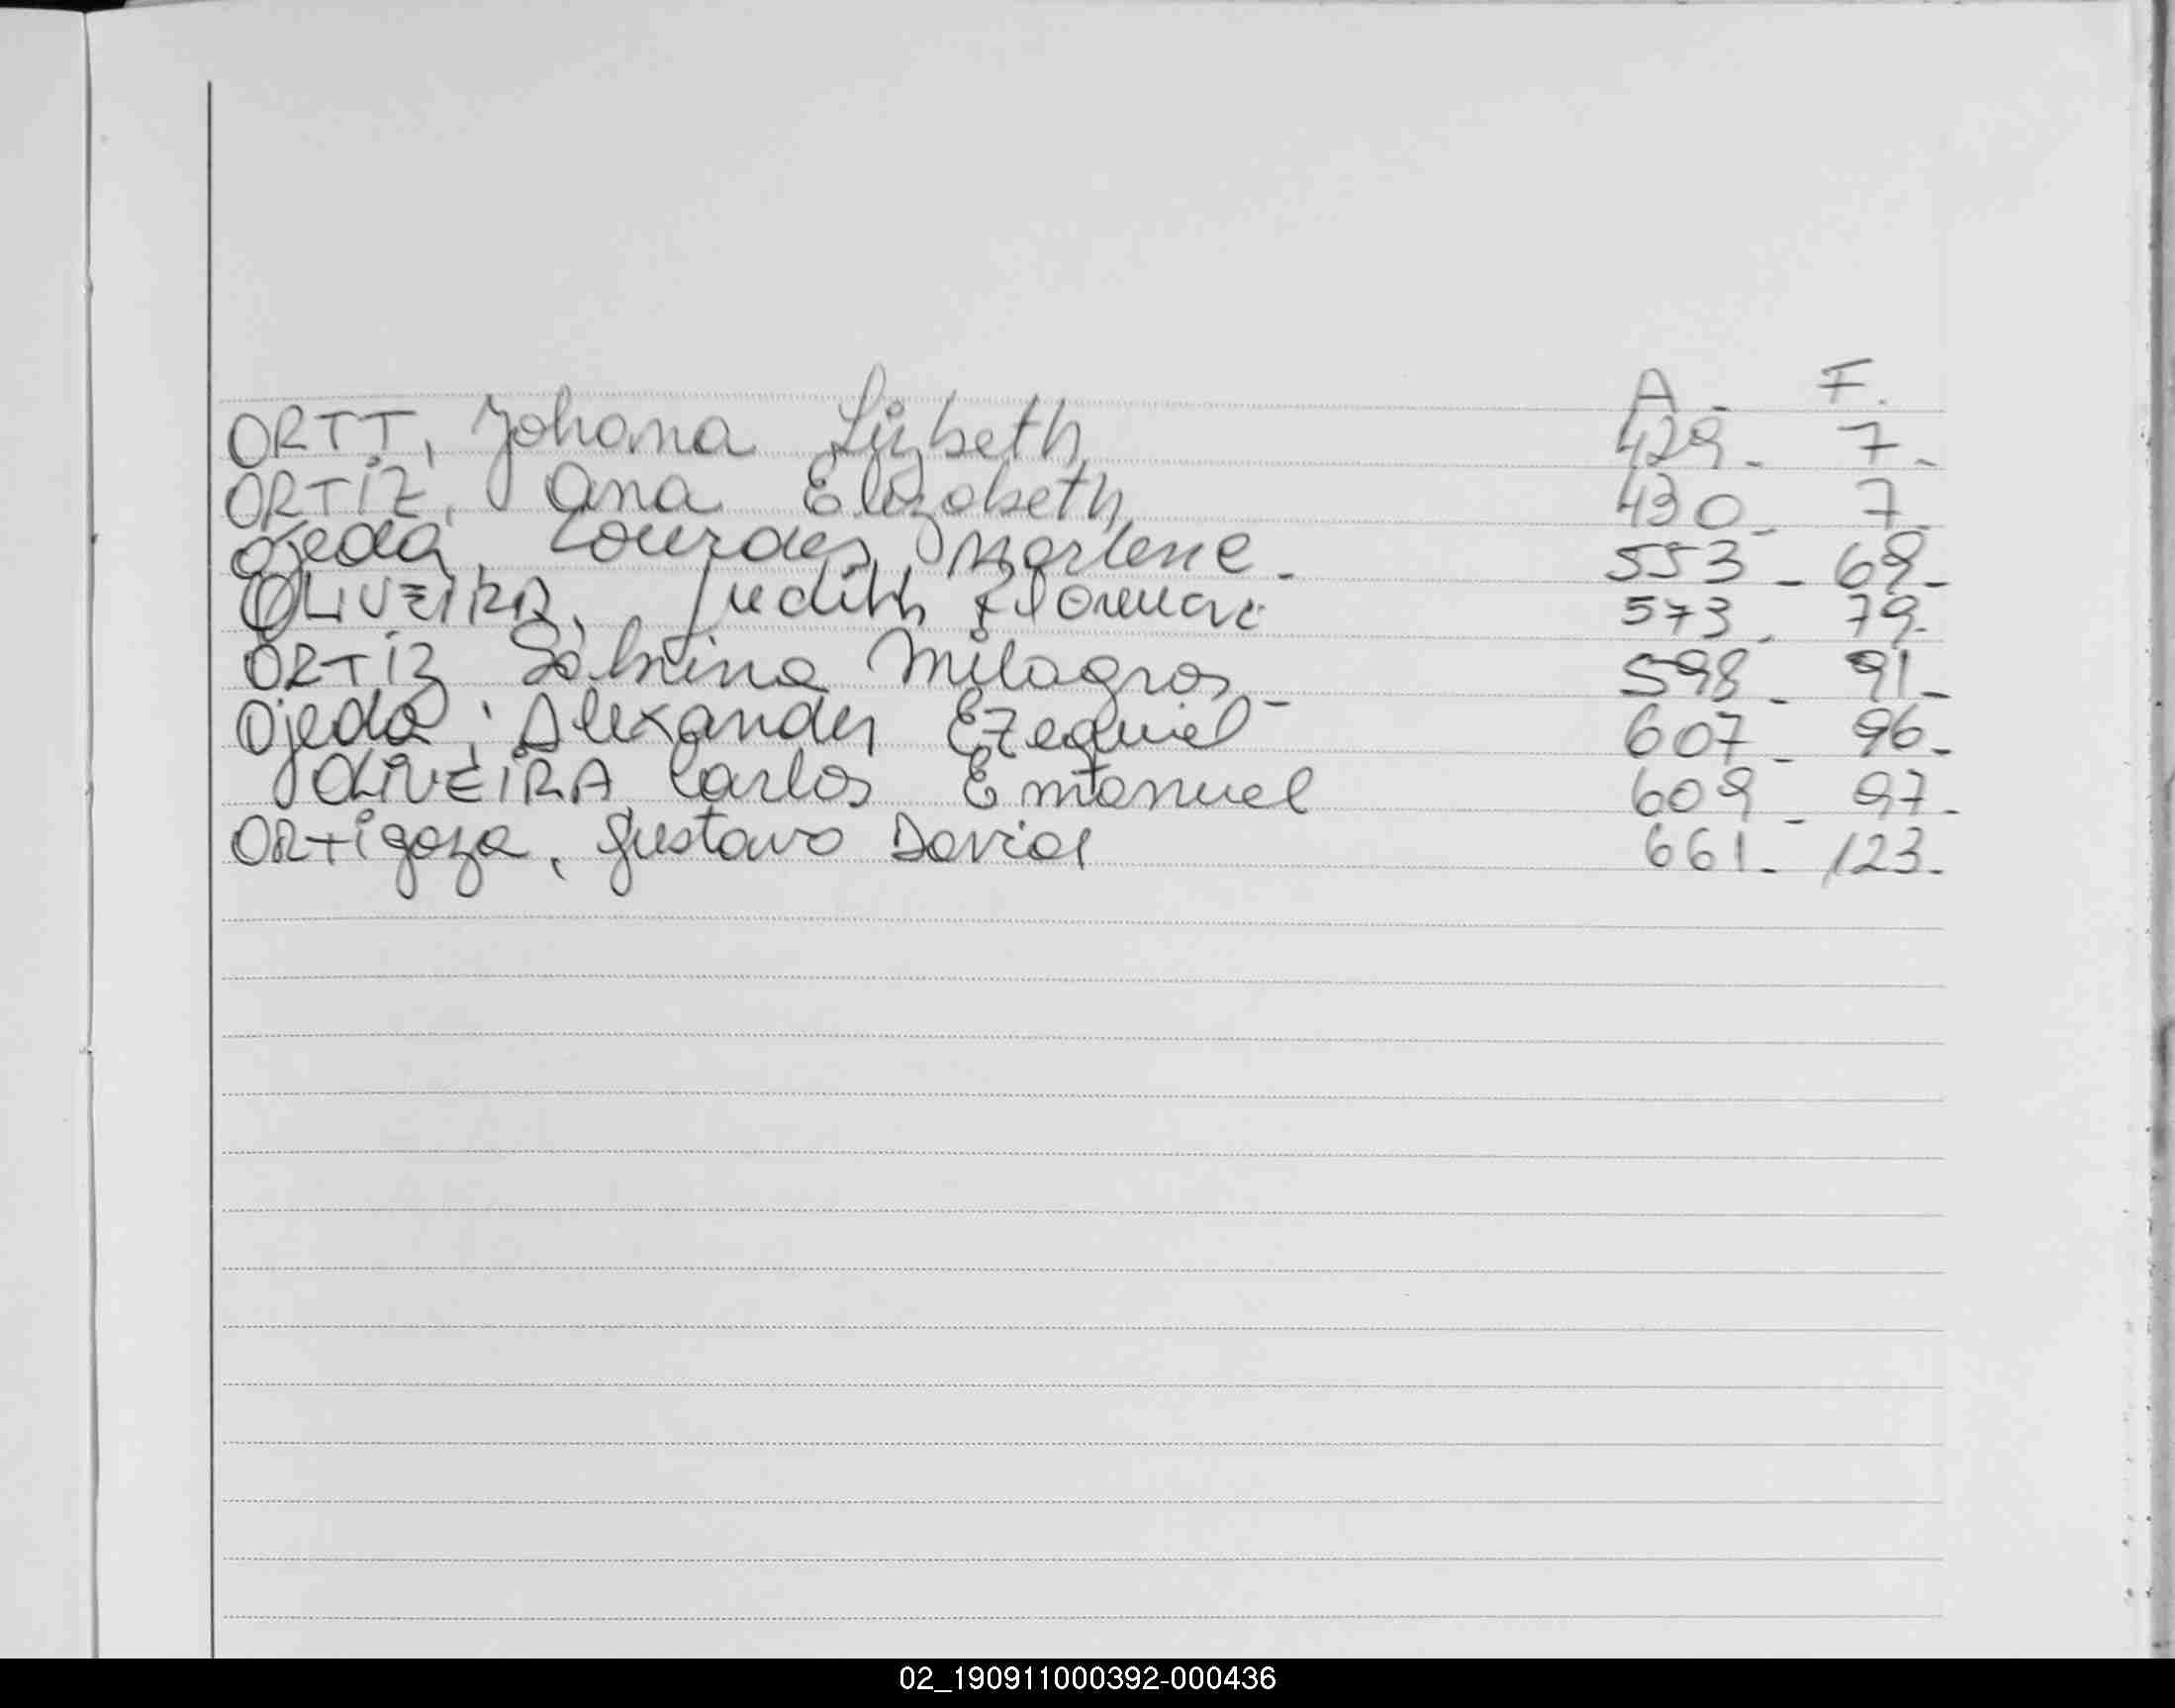 A - F.
ORTT, Johana Lizbeth 429 - 7 -
ORTIZ, Ana Elizabeth 430 - 7 -
Ojeda, Lourdes Marlene - 553 - 69 -
OLIVEIRA, Judith 573 - 79 -
ORTIZ Sabrina Milagros - 598 - 91 -
Ojeda, Alexander Ezequiel 607 - 96 -
OLIVEIRA, Carlos Emanuel 609 - 97 -
ORtigoza, Gustavo David 661 - 123 -
02_190911000392-000436